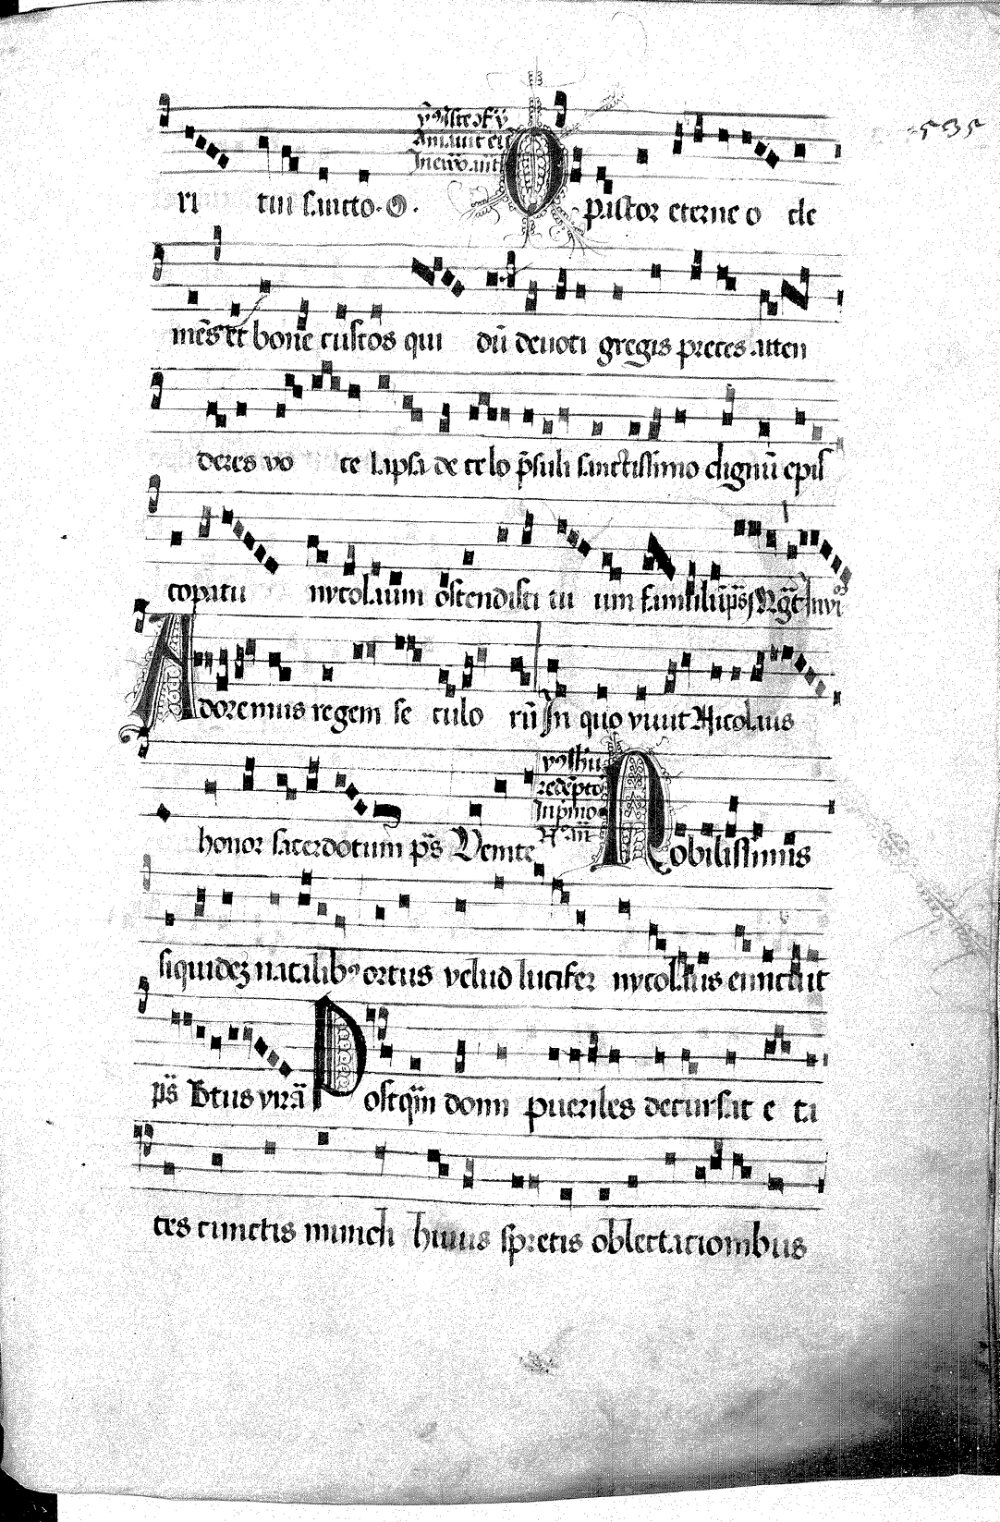 535
Amauit eū
ri tui sancto. O. pastor eterne o cle
mēs et bone custos qui dū deuoti gregis preces atten
deres vo ce lapsa de celo p̄suli sanctissimo dignū epis
copatu nycolaum ostendisti tu um famulū p̄s Mḡt Inui
Adoremus regem se culo rū In quo viuit Nicolaus
redēpto
honor sacerdotum p̄s Venite Nobilissimis
siquidez natalibꝰ ortus velud lucifer nycolaus emicuit
p̄s Btus virā Postq̄m domi pueriles decursat e ta
tes cunctis mundi huius spretis oblectationibus